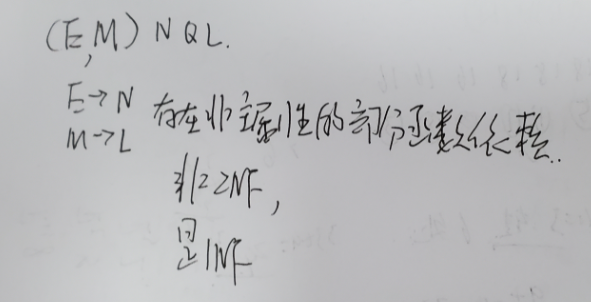 (E,M) N Q L.
E→N 存在非主属性的部分函数依赖.
M→L
非2NF,
是1NF